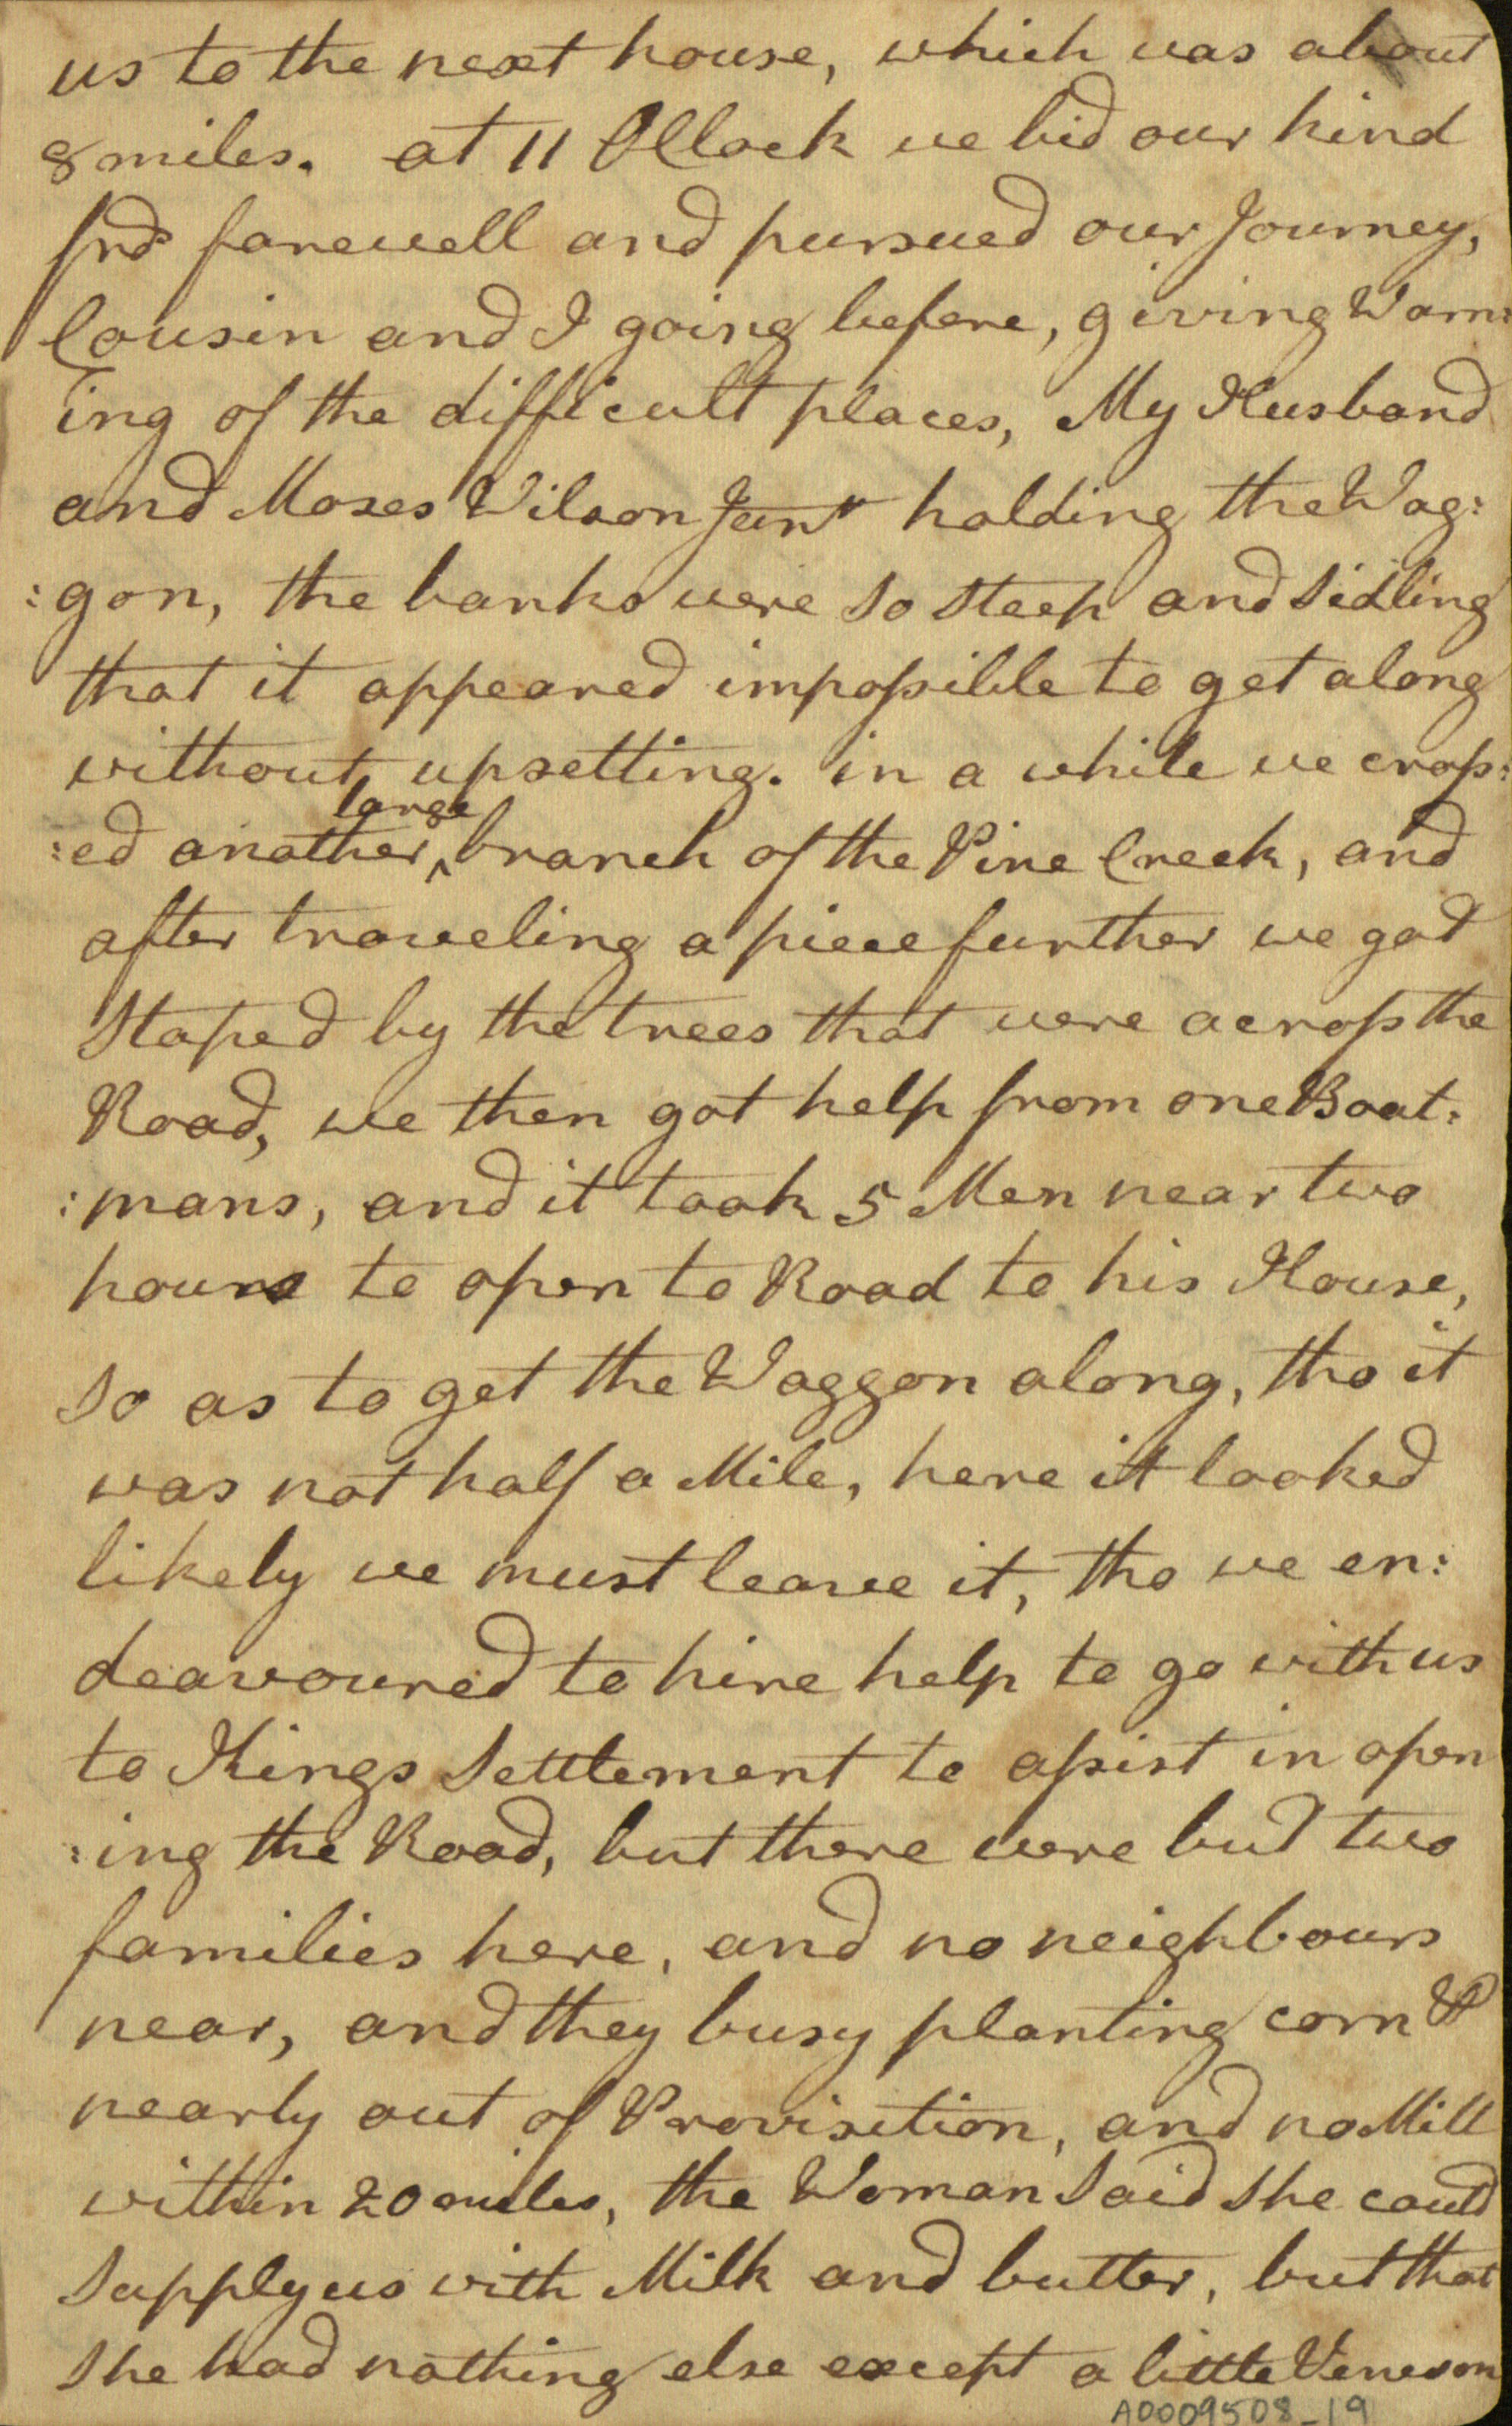 us to the next house, which was about
8 miles. at 11 OClock we bid our kind
frds farewell and pursued our Journey,
Cousin and I going before, giving Warn:
ing of the difficult places, My Husband
and Moses Wilson Junr holding the Wag:
:gon, the banks were so steep and sidling
that it appeared impossible to get along
without upsetting. in a while we cross:
large
:ed another ^ branch of the Pine Creek, and
after traveling a piece further we got
stoped by the trees that were across the
Road, we then got help from one Boat:
:mans, and it took 5 Men near two
hours to open to Road to his House,
so as to get the Waggon along, tho it
was not half a Mile, here it looked
likely we must leave it, tho we en:
deavoured to hire help to go with us
to Kings Settlement to assist in open
:ing the Road, but there were but two
families here, and no neighbours
near, and they busy planting corn &
nearly out of Provisition, and no Mill
within 20 miles, the Woman said she could
supply us with Milk and butter, but that
she had nothing else except a little Veneson
A0009508_19